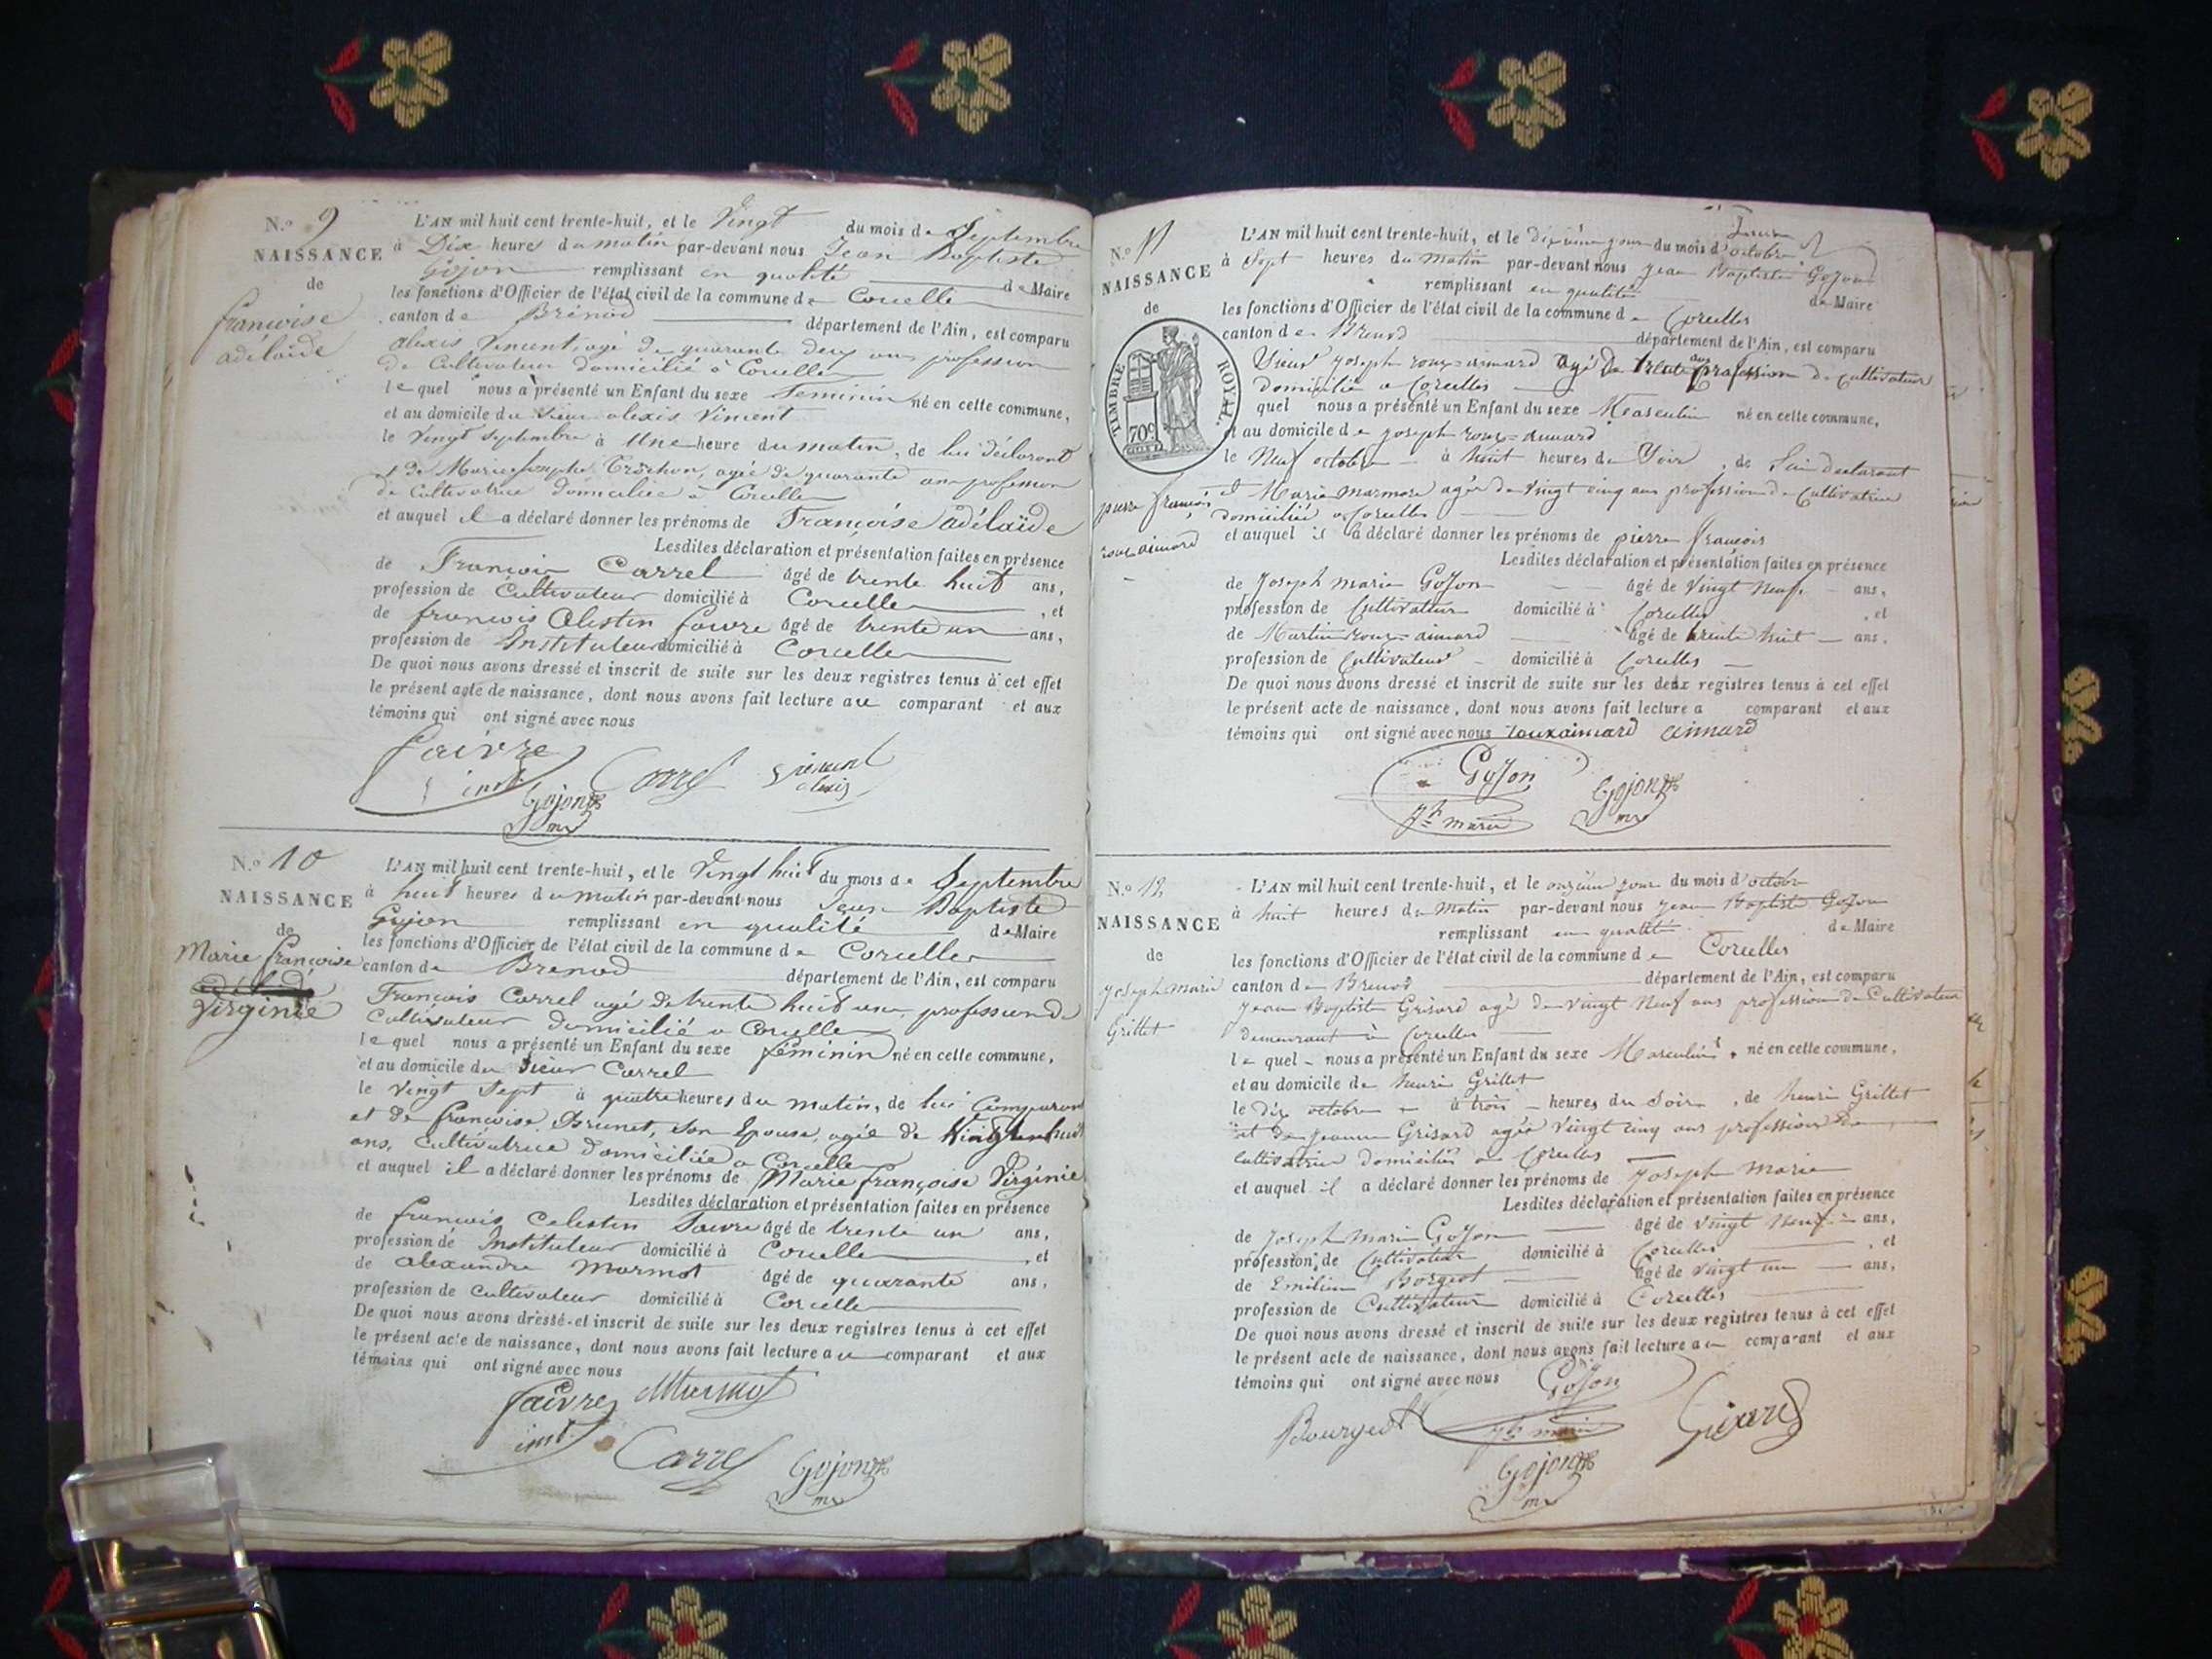 N.o 9
NAISSANCE
de
françoise
adélaïde
L'AN mil huit cent trente-huit, et le Vingt du mois de Septembre
à Dix heures du matin par-devant nous Jean Baptiste
Gojon remplissant en qualité de Maire
les fonctions d'Officier de l'état civil de la commune de Corcelle
canton de Brénod département de l'Ain, est comparu
alexis Vincent, agé de quarante deux ans profession
de Cultivateur domicilié à Corcelle
lequel nous a présenté un Enfant du sexe Feminin né en cette commune,
et au domicile du sieur alexis Vincent
le Vingt septembre à Une heure du matin, de lui déclarant
et de Marie Josephe agée de quarante ans profession
de Cultivatrice domiciliée à Corcelle
et auquel il a déclaré donner les prénoms de Françoise adélaïde
Lesdites déclaration et présentation faites en présence
de François Carrel âgé de trente huit ans,
profession de Cultivateur domicilié à Corcelle , et
de françois Celestin faivre âgé de trente un ans,
profession de Instituteur domicilié à Corcelle
De quoi nous avons dressé et inscrit de suite sur les deux registres tenus à cet effet
le présent acte de naissance, dont nous avons fait lecture au comparant et aux
témoins qui ont signé avec nous
faivre Carrel Vincent
inst. alexis
Gojon
mre
N.o 10
NAISSANCE
de
Marie françoise
Virginie
L'AN mil huit cent trente-huit, et le Vingt huit du mois de Septembre
à huit heures du matin par-devant nous Jean Baptiste
Gojon remplissant en qualité de Maire
les fonctions d'Officier de l'état civil de la commune de Corcelle
canton de Brenod département de l'Ain, est comparu
François Carrel agé de trente huit ans, profession de
Cultivateur domicilié a Corcelle
lequel nous a présenté un Enfant du sexe féminin né en cette commune,
et au domicile du sieur Carrel
le Vingt Sept à quatre heures du matin, de lui Comparant
et de françoise Brunet, son Epouse, agée de
ans, Cultivatrice domiciliée a Corcelle
et auquel il a déclaré donner les prénoms de Marie françoise Virginie
Lesdites déclaration et présentation faites en présence
de françois Celestin faivre âgé de trente un ans,
profession de Instituteur domicilié à Corcelle , et
de alexandre Marmot âgé de quarante ans,
profession de Cultivateur domicilié à Corcelle
De quoi nous avons dressé et inscrit de suite sur les deux registres tenus à cet effet
le présent acte de naissance, dont nous avons fait lecture au comparant et aux
témoins qui ont signé avec nous
faivre Marmot
inst. Carrel Gojon
mre
N.o 11
NAISSANCE
de
TIMBRE ROYAL
70c
pierre françois
roux aimard
L'AN mil huit cent trente-huit, et le dixième jour du mois d'octobre
à Sept heures du matin par-devant nous jean Baptiste Gojon
remplissant en qualité de Maire
les fonctions d'Officier de l'état civil de la commune de Corcelles
canton de Brenod département de l'Ain, est comparu
Sieur joseph roux=aimard agé de trente ans profession de Cultivateur
domicilié a Corcelles
quel nous a présenté un Enfant du sexe Masculin né en cette commune,
et au domicile de joseph roux=aimard
le Neuf octobre à huit heures du Soir, de Lui declarant
et Marie marmot agée de Vingt cinq ans profession de Cultivatrice
domiciliée a Corcelles
et auquel il a déclaré donner les prénoms de pierre françois
Lesdites déclaration et présentation faites en présence
de joseph marie Gojon âgé de Vingt Neuf ans,
profession de Cultivateur domicilié à Corcelles , et
de Martin roux=aimard âgé de trente huit ans,
profession de Cultivateur domicilié à Corcelles
De quoi nous avons dressé et inscrit de suite sur les deux registres tenus à cet effet
le présent acte de naissance, dont nous avons fait lecture a comparant et aux
témoins qui ont signé avec nous rouxaimard aimard
Gojon Gojon
jh marie mre
N.o 12
NAISSANCE
de
joseph marie
Grillet
L'AN mil huit cent trente-huit, et le onzième jour du mois d'octobre
à huit heures du Matin par-devant nous jean Baptiste Gojon
remplissant en qualité de Maire
les fonctions d'Officier de l'état civil de la commune de Corcelles
canton de Brenod département de l'Ain, est comparu
jean Baptiste Grisard agé de Vingt Neuf ans profession de Cultivateur
demeurant à Corcelles
lequel nous a présenté un Enfant du sexe Masculin, né en cette commune,
et au domicile de henri Grillet
le Dix octobre à trois heures du Soir, de henri Grillet
et de jeanne Grisard agée Vingt cinq ans profession de
cultivatrice domiciliée a Corcelles
et auquel il a déclaré donner les prénoms de joseph marie
Lesdites déclaration et présentation faites en présence
de joseph marie Gojon âgé de Vingt Neuf ans,
profession de Cultivateur domicilié à Corcelles , et
de Emilien Borgeot âgé de Vingt un ans,
profession de Cultivateur domicilié à Corcelles
De quoi nous avons dressé et inscrit de suite sur les deux registres tenus à cet effet
le présent acte de naissance, dont nous avons fait lecture au comparant et aux
témoins qui ont signé avec nous Gojon
Bourgeot jh marie Grisard
Gojon
mre